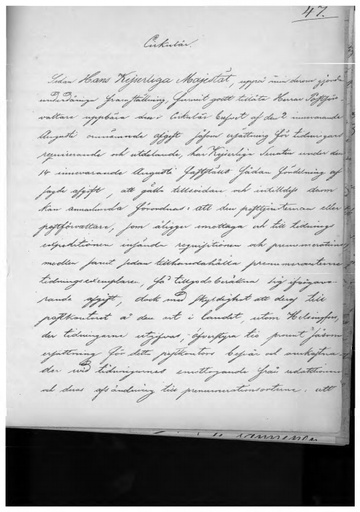 47.
Cirkulär.
Sedan Hans Kejserliga Majestät, uppå derom gjord
underdånig framställning, funnit godt tillåta Herrar Postför-
valtare uppbära den i Cirkulär brefvet af den 2 innevarande
Augusti omnämnda afgift såsom ersättning för tidningars
reqvirerande och utdelande, har Kejserliga Senaten under den
14 innevarande Augusti fastställt sådan fördelning af
sagde afgift, att
kan annorlunda förordnas: att den posttjensteman eller
postförvaltare, som åligger emottaga och till tidnings
expeditionen insända reqvisitionen och prenumerations
medlen samt sedan tillhandahålla prenumeranterne
tidningsexemplaren, få tillgodoberäkna sig
rande afgift, dock med skyldighet att deraf till
postkontoret å den ort i landet, utom Helsingfors,
der tidningarne utgifvas, öfverstyra tio procent såsom
ersättning för detta postkontors besvär vid
der med tidningarnes emottagande från redaktionen
och deras afsändning till prenumerationsorterne; att